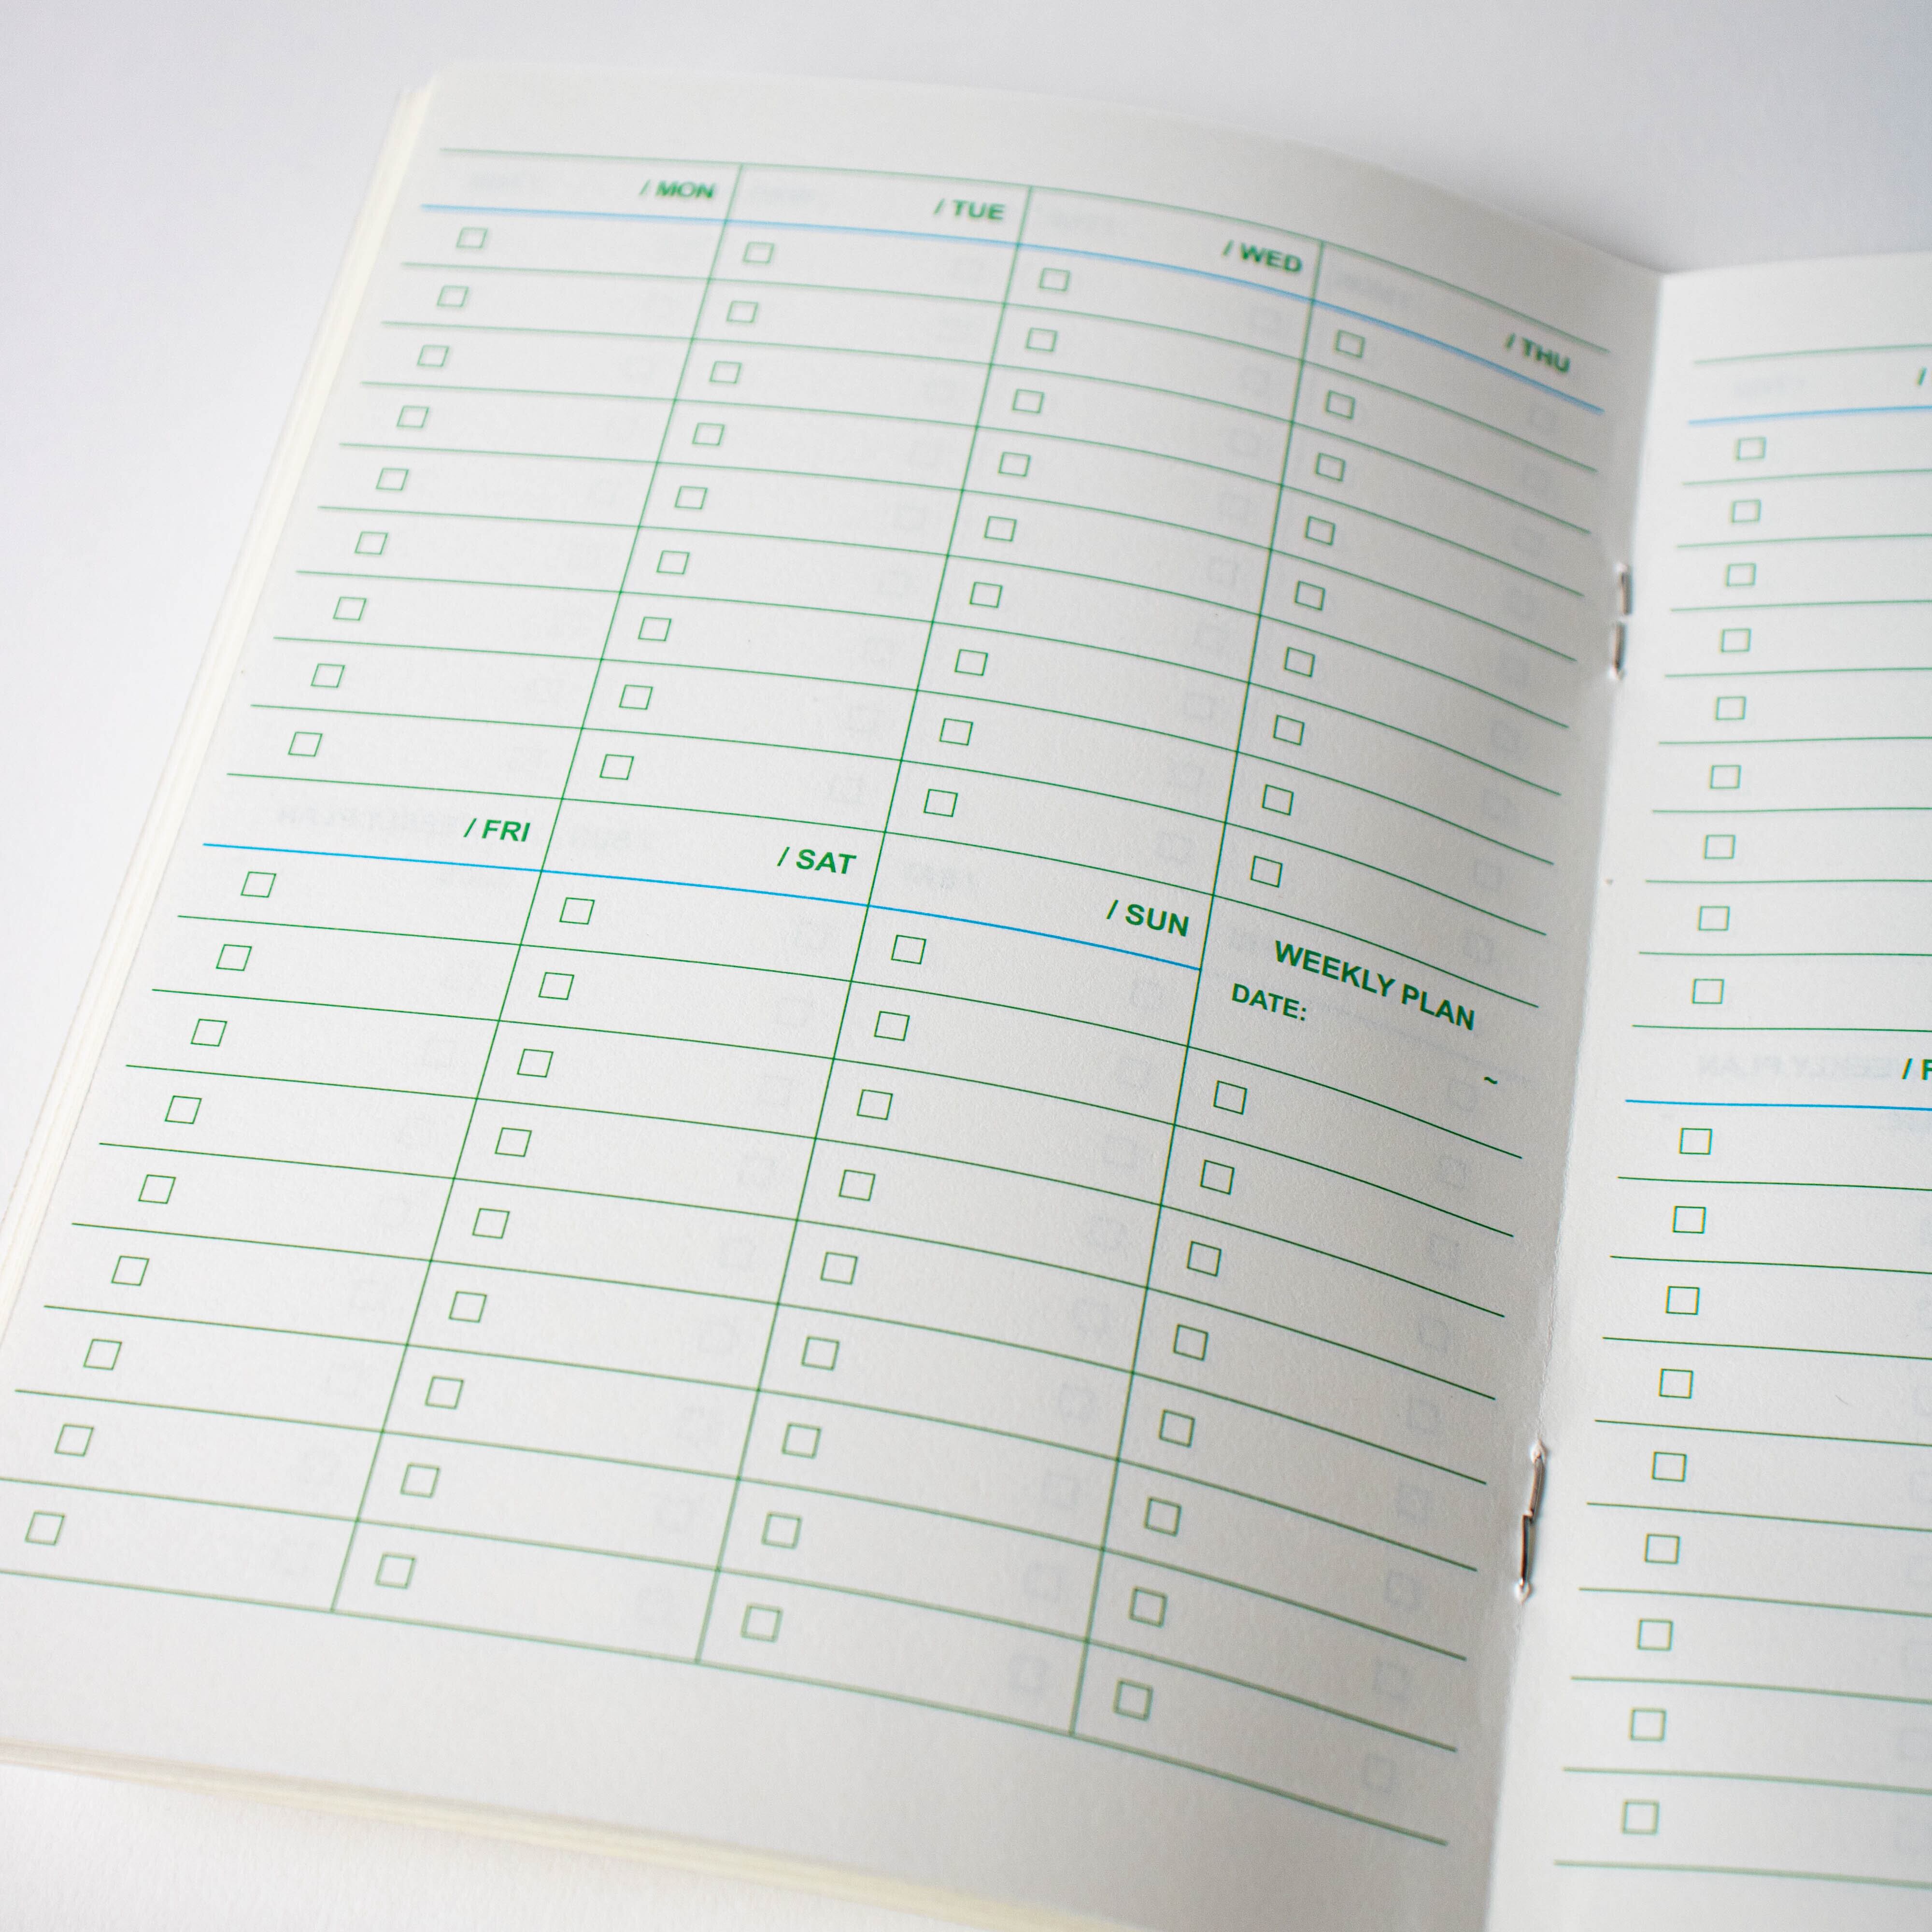 / MON / TUE / WED / THU
/ FRI / SAT / SUN WEEKLY PLAN
DATE:
~
/
/ F